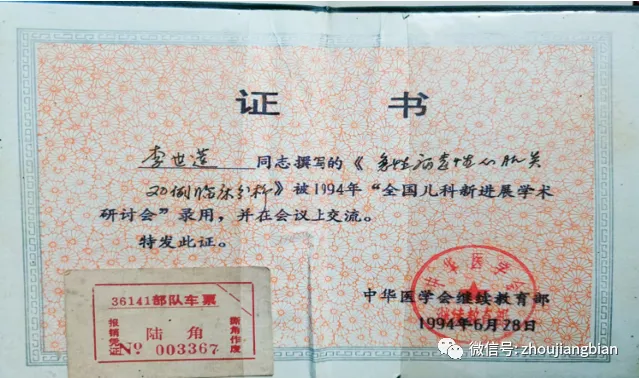 证 书
李世莲 同志撰写的《急性病毒性心肌炎
20例临床分析》被1994年“全国儿科新进展学术
研讨会”录用，并在会议上交流。
特发此证。
中华医学会
继续教育部
中华医学会继续教育部
1994年6月28日
36141部队车票
报销凭证
陆 角
剪角作废
№ 003367
微信号: zhoujiangbian